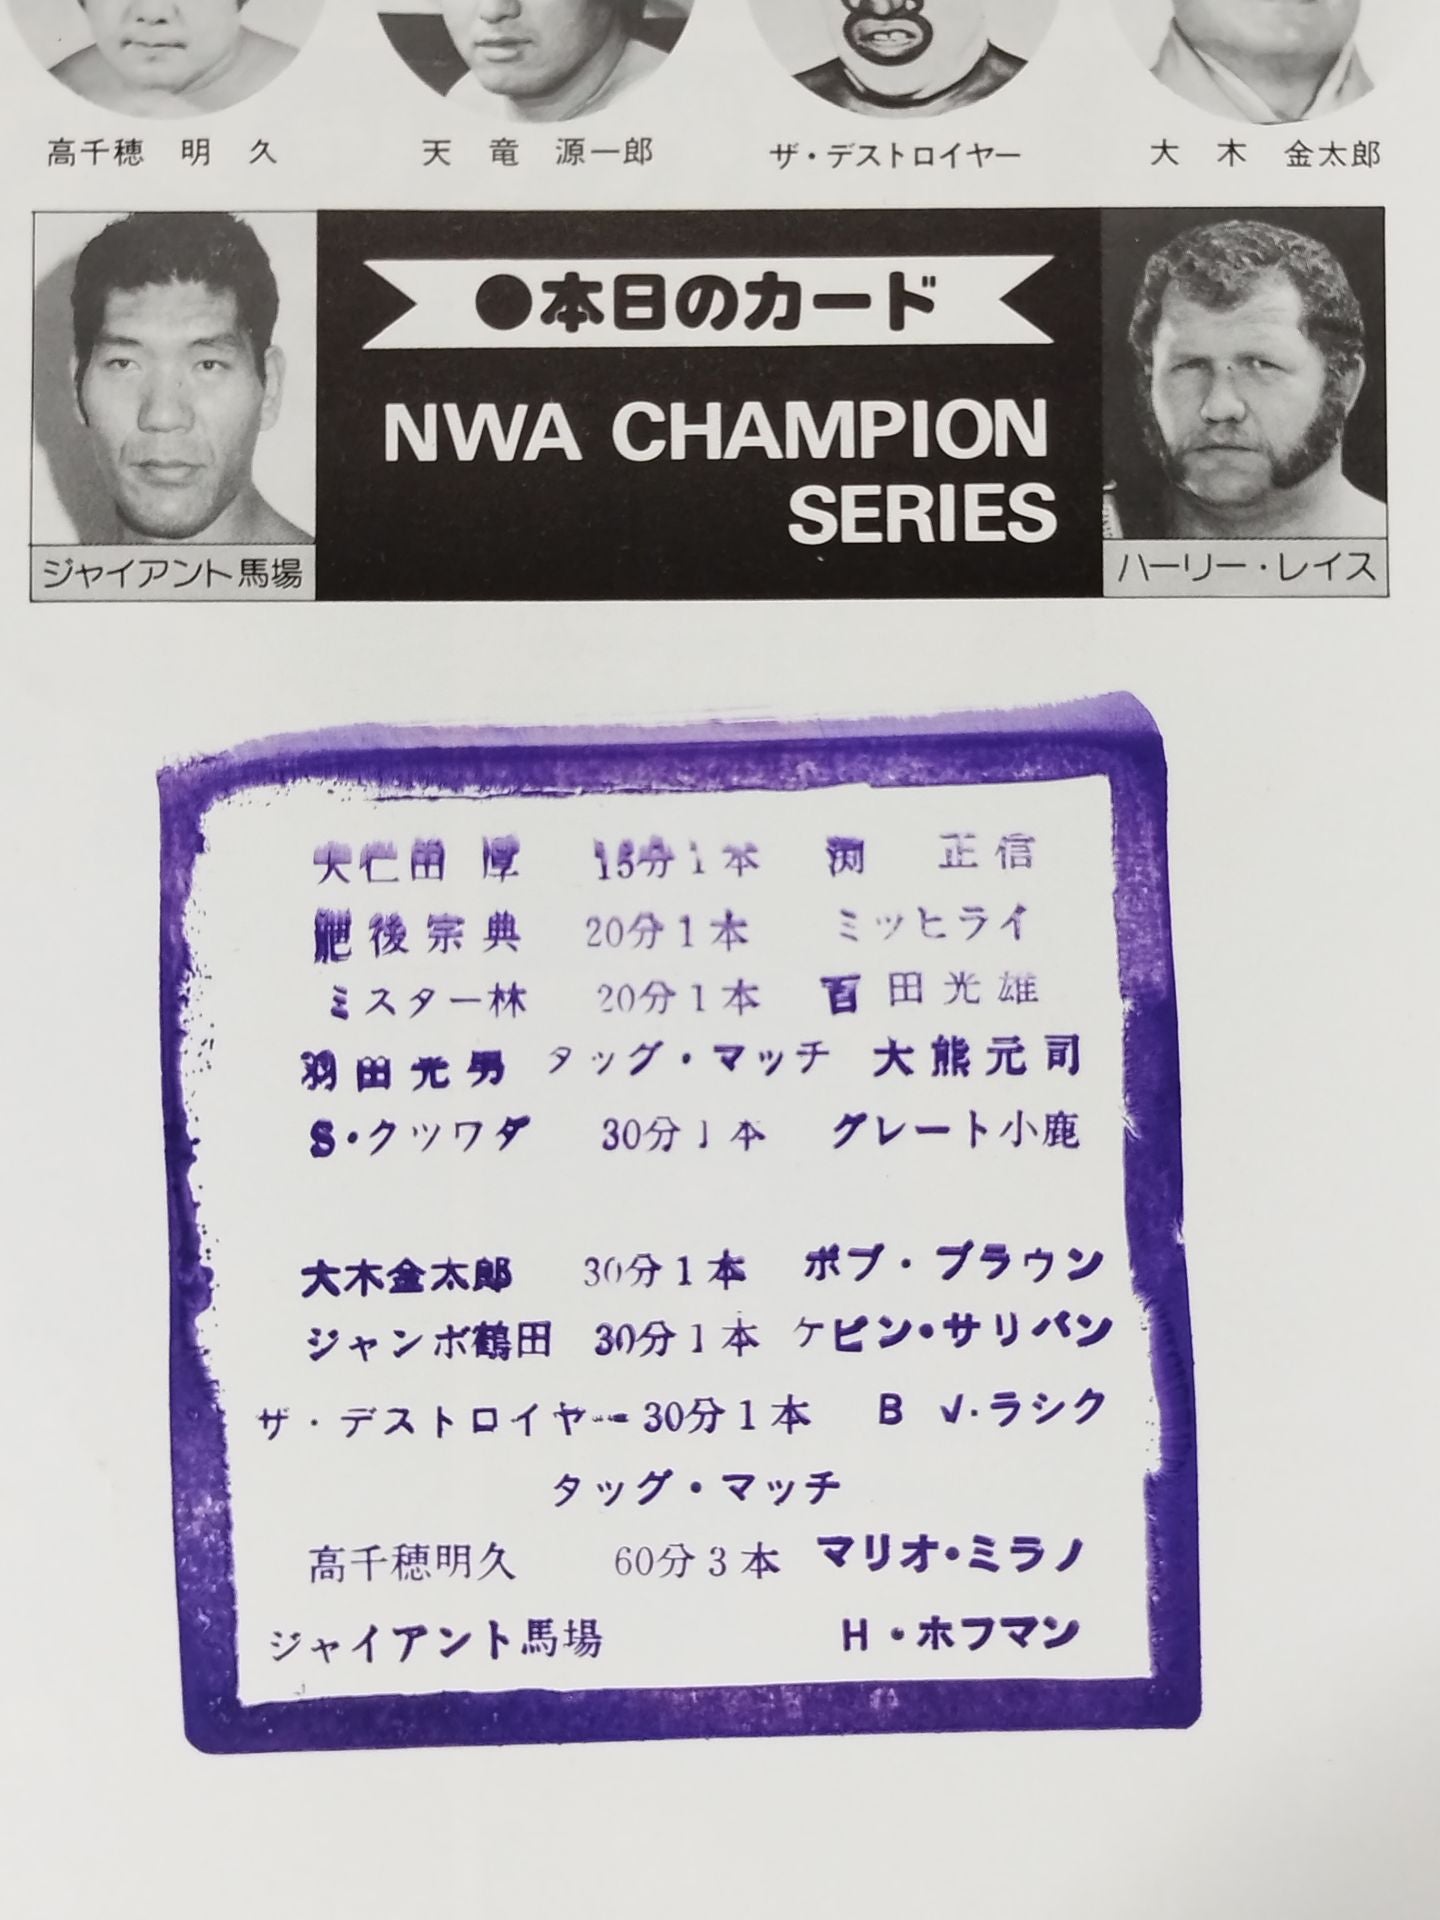 高千穂 明 久 天 竜 源一郎 ザ・デストロイヤー 大 木 金太郎
●本日のカード
NWA CHAMPION
SERIES
ジャイアント馬場 ハーリー・レイス
大仁田 厚 15分1本 渕 正信
肥後宗典 20分1本 ミッヒライ
ミスター林 20分1本 百田光雄
羽田光男 タッグ・マッチ 大熊元司
S・クツワダ 30分1本 グレート小鹿
大木金太郎 30分1本 ボブ・ブラウン
ジャンボ鶴田 30分1本 ケビン・サリバン
ザ・デストロイヤー 30分1本 B・V・ラシク
タッグ・マッチ
高千穂明久 60分3本 マリオ・ミラノ
ジャイアント馬場 H・ホフマン